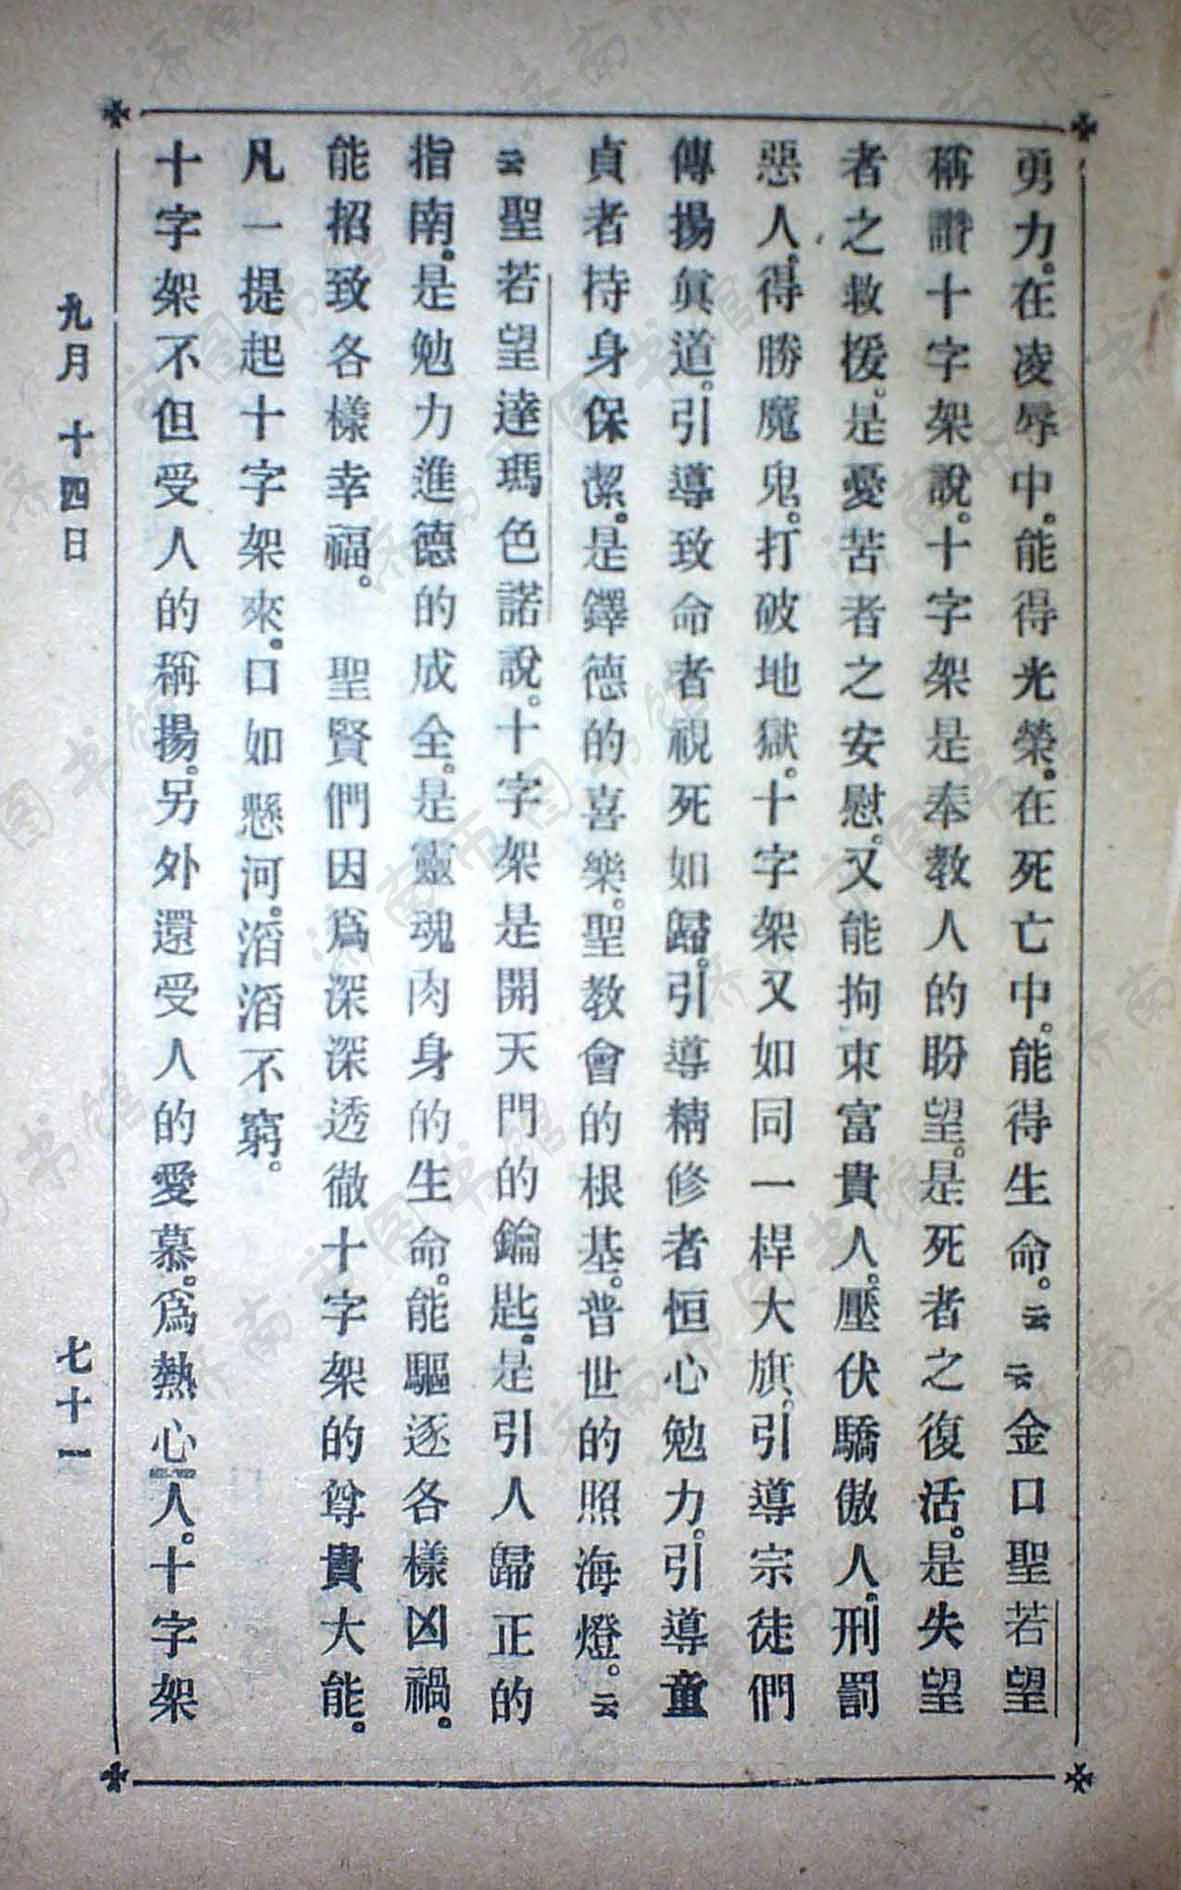 勇力。在凌辱中。能得光榮。在死亡中。能得生命。云云金口聖若望
稱讚十字架說。十字架是奉教人的盼望。是死者之復活。是失望
者之救援。是憂苦者之安慰。又能拘束富貴人。壓伏驕傲人。刑罰
惡人。得勝魔鬼。打破地獄。十字架又如同一桿大旗。引導宗徒們
傳揚眞道。引導致命者視死如歸。引導精修者恒心勉力。引導童
貞者持身保潔。是鐸德的喜樂。聖教會的根基。普世的照海燈。云
云聖若望達瑪色諾說。十字架是開天門的鑰匙。是引人歸正的
指南。是勉力進德的成全。是靈魂肉身的生命。能驅逐各樣凶禍。
能招致各樣幸福。 聖賢們因爲深深透徹十字架的尊貴大能。
凡一提起十字架來。口如懸河。滔滔不窮。
十字架不但受人的稱揚。另外還受人的愛慕。爲熱心人。十字架
九月 十四日 七十一
济南市图书馆